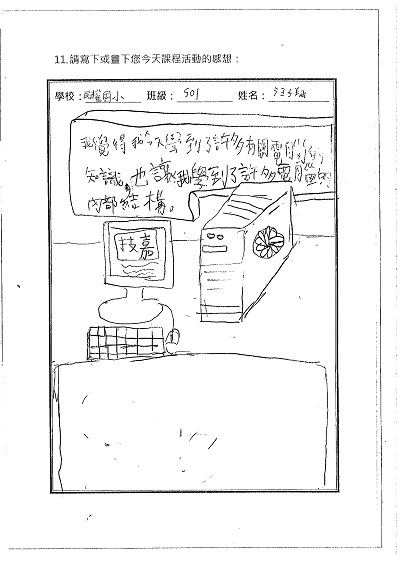 11.請寫下或畫下您今天課程活動的感想：
學校：民權國小 班級：501 姓名：
我覺得我今天學到了許多有關電腦的
知識，也讓我學到了許多電腦的
內部結構。
技嘉